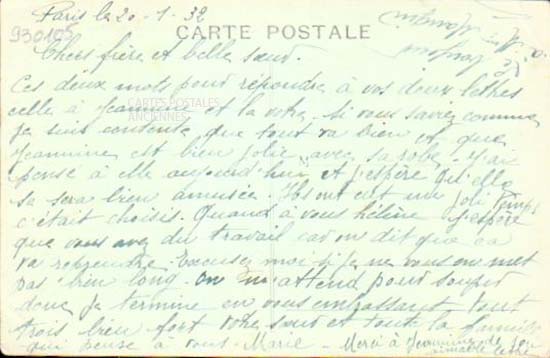 Paris le 20-1-32
930105
CARTE POSTALE
Chers frère et belle sœur.
Ces deux mots pour répondre à vos deux lettres
celle à Jeannine et la votre. Si vous saviez comme
CARTES POSTALES
ANCIENNES
je suis contente que tout va bien et que
Jeannine est bien jolie avec sa robe. J'ai
pensé à elle aujourd'hui et j'espère qu'elle
sa sera bien amusée. Ils ont eut un joli temps
c'était choisis. Quand à vous hélène j'espère
que vous avez du travail car on dit que ca
va reprendre. Excusez moi si je ne vous en met
pas bien long. on m'attend pour souper
donc je termine en vous embrassant tout
trois bien fort votre sœur et toute la famille
qui pense à vous. Marie. Merci à Jeannine de son
aimable lettre